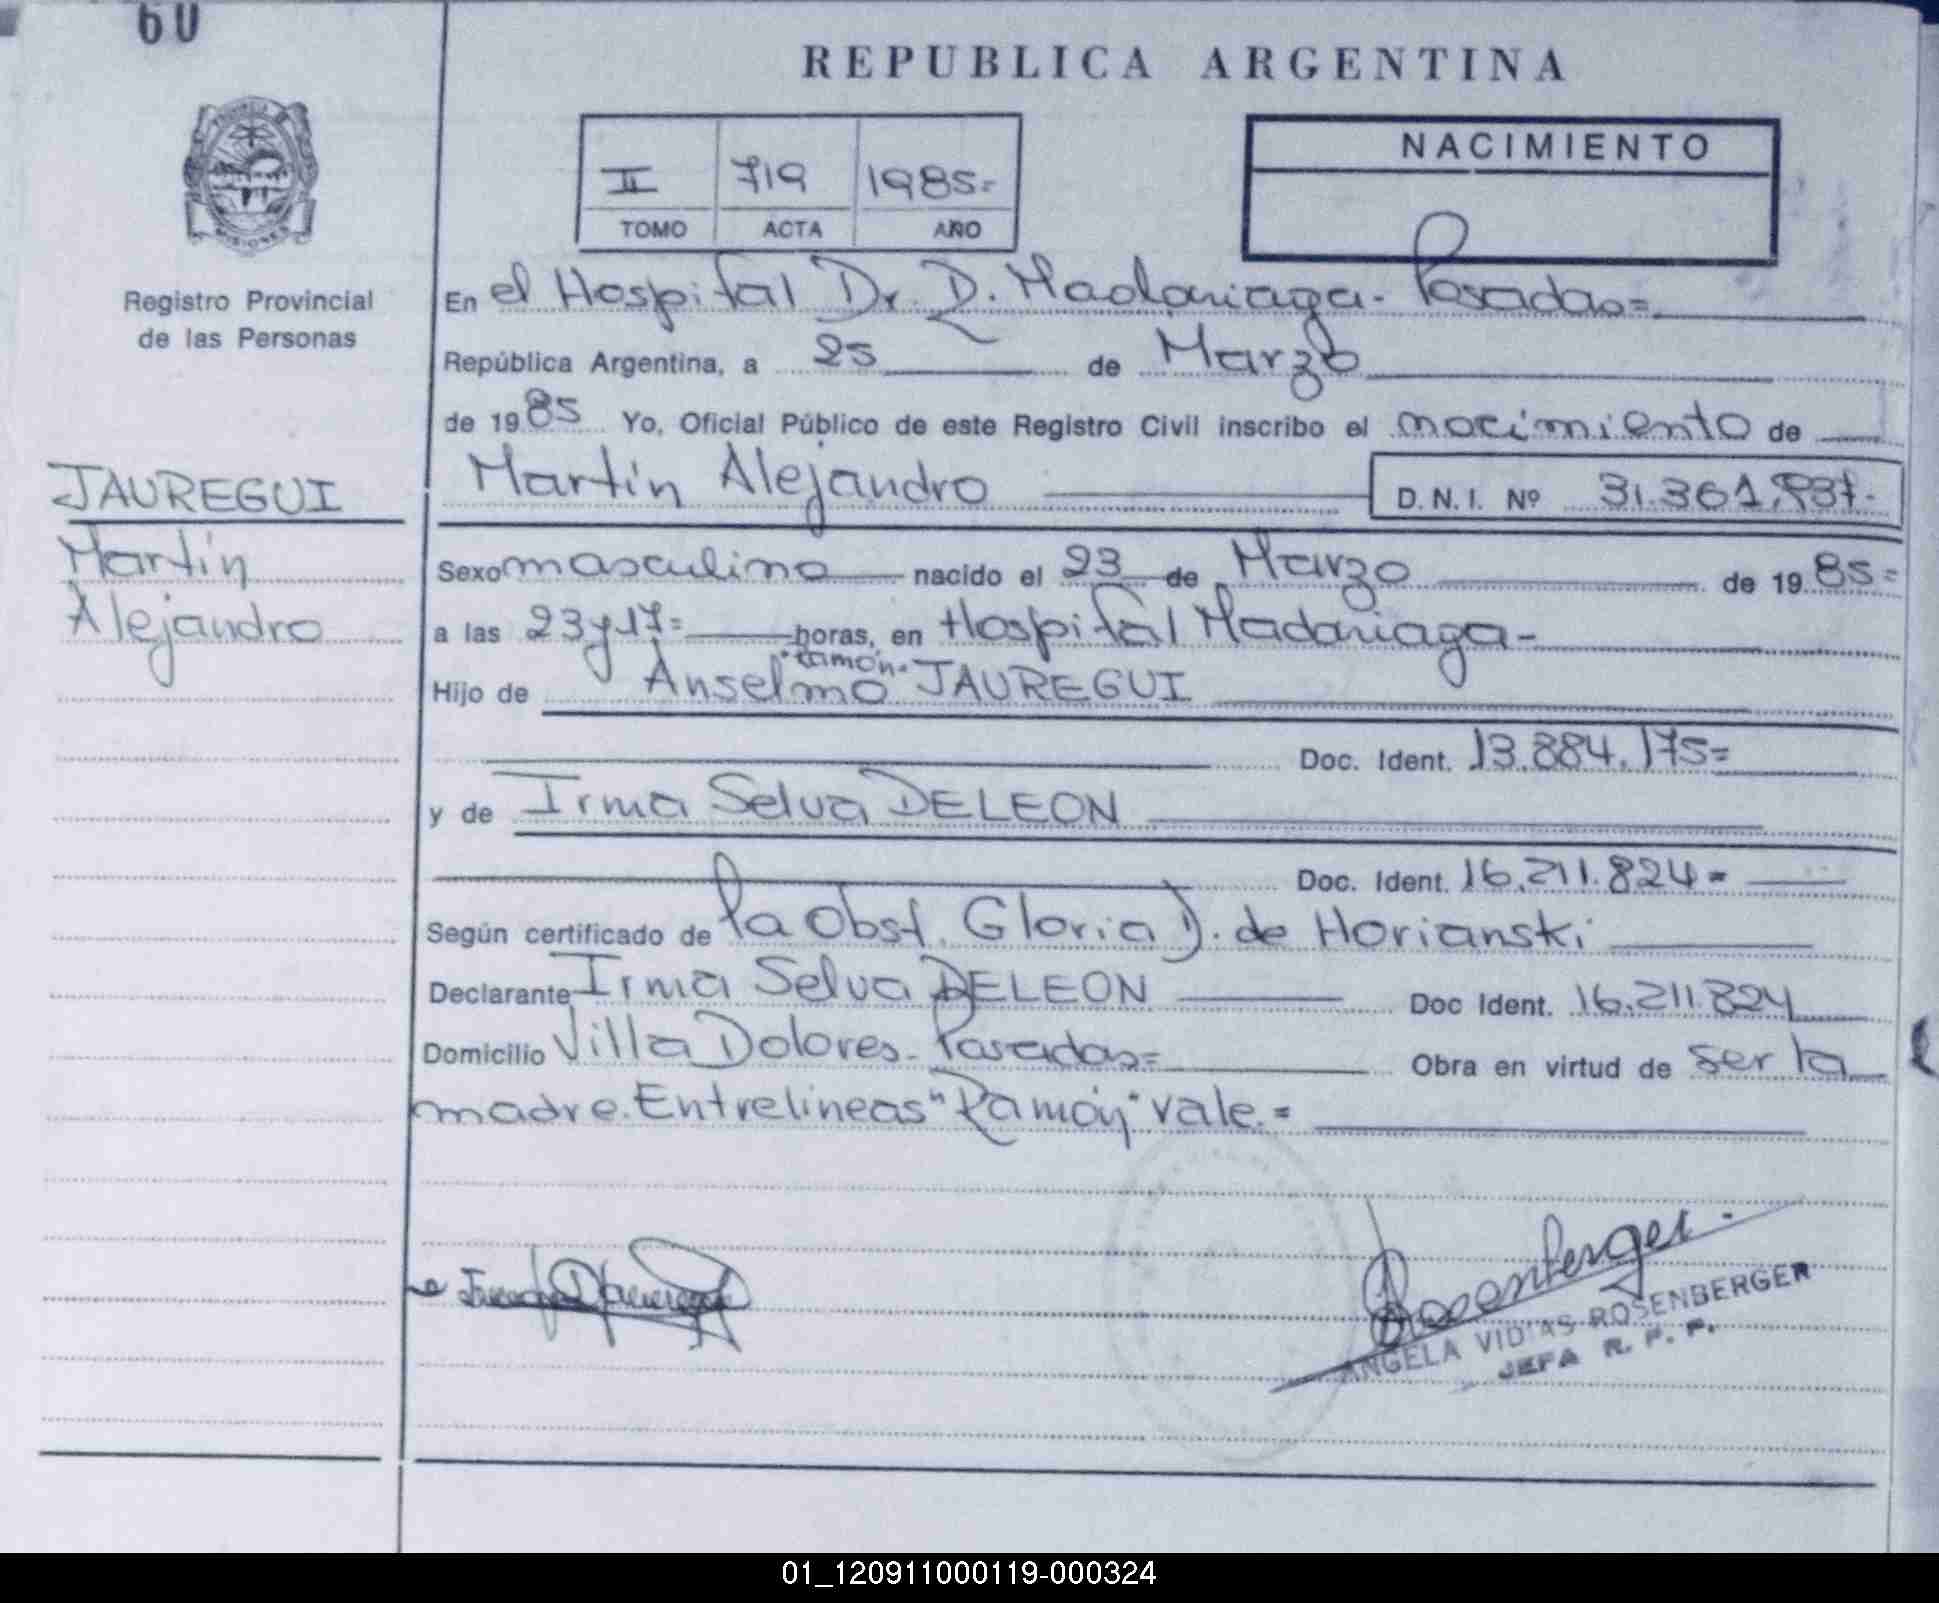 60
REPUBLICA ARGENTINA
II 719 1985=
TOMO ACTA AÑO
NACIMIENTO
PROVINCIA DE
MISIONES
Registro Provincial
de las Personas
En el Hospital Dr. R. Madariaga - Posadas=
República Argentina, a 25 de Marzo
de 1985 Yo, Oficial Público de este Registro Civil inscribo el nacimiento de
JAUREGUI
Martín
Alejandro
Martín Alejandro D.N.I. Nº 31.361.937-
Sexo masculino nacido el 23 de Marzo de 1985=
a las 23 y 17= horas, en Hospital Madariaga-
"Ramón"
Hijo de Anselmo JAUREGUI
Doc. Ident. 13.884.175=
y de Irma Selva DELEON
Doc. Ident. 16.211.824=
Según certificado de la Obst. Gloria D. de Horianski
Declarante Irma Selva DELEON Doc Ident. 16.211.824
Domicilio Villa Dolores - Posadas= Obra en virtud de ser la
madre. Entrelineas "Ramón" vale.=
Rosenberger
ANGELA VIDIAS ROSENBERGER
JEFA R. P. P.
01_120911000119-000324